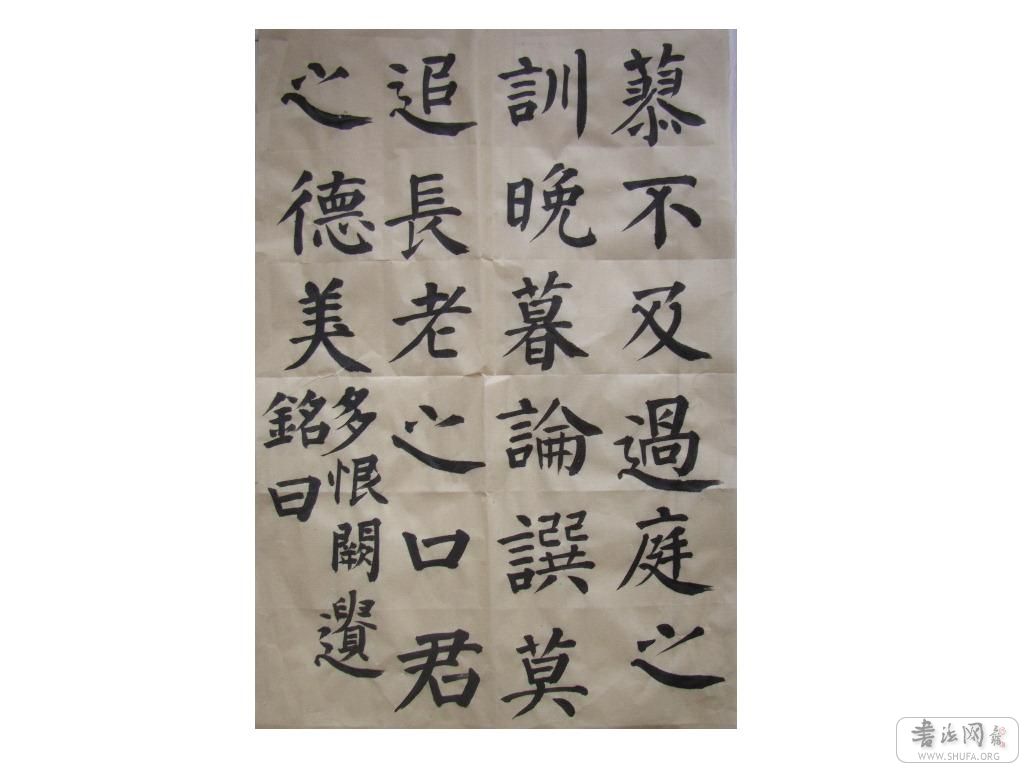 慕不及過庭之
訓晚暮論譔莫
追長老之口君
之德美多恨闕遺
銘曰
书法网
WWW.SHUFA.ORG